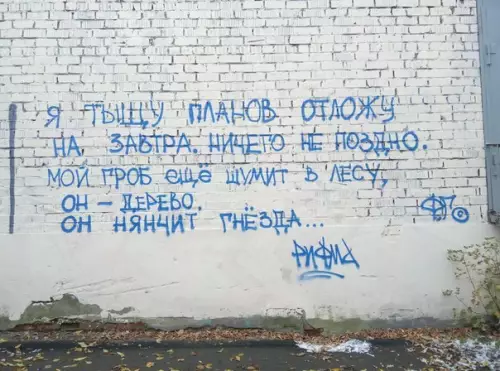 Я ТЫЩУ ПЛАНОВ ОТЛОЖУ
НА ЗАВТРА. НИЧЕГО НЕ ПОЗДНО.
МОЙ ГРОБ ЕЩЁ ШУМИТ В ЛЕСУ,
ОН - ДЕРЕВО.
ОН НЯНЧИТ ГНЁЗДА...
РИФМА